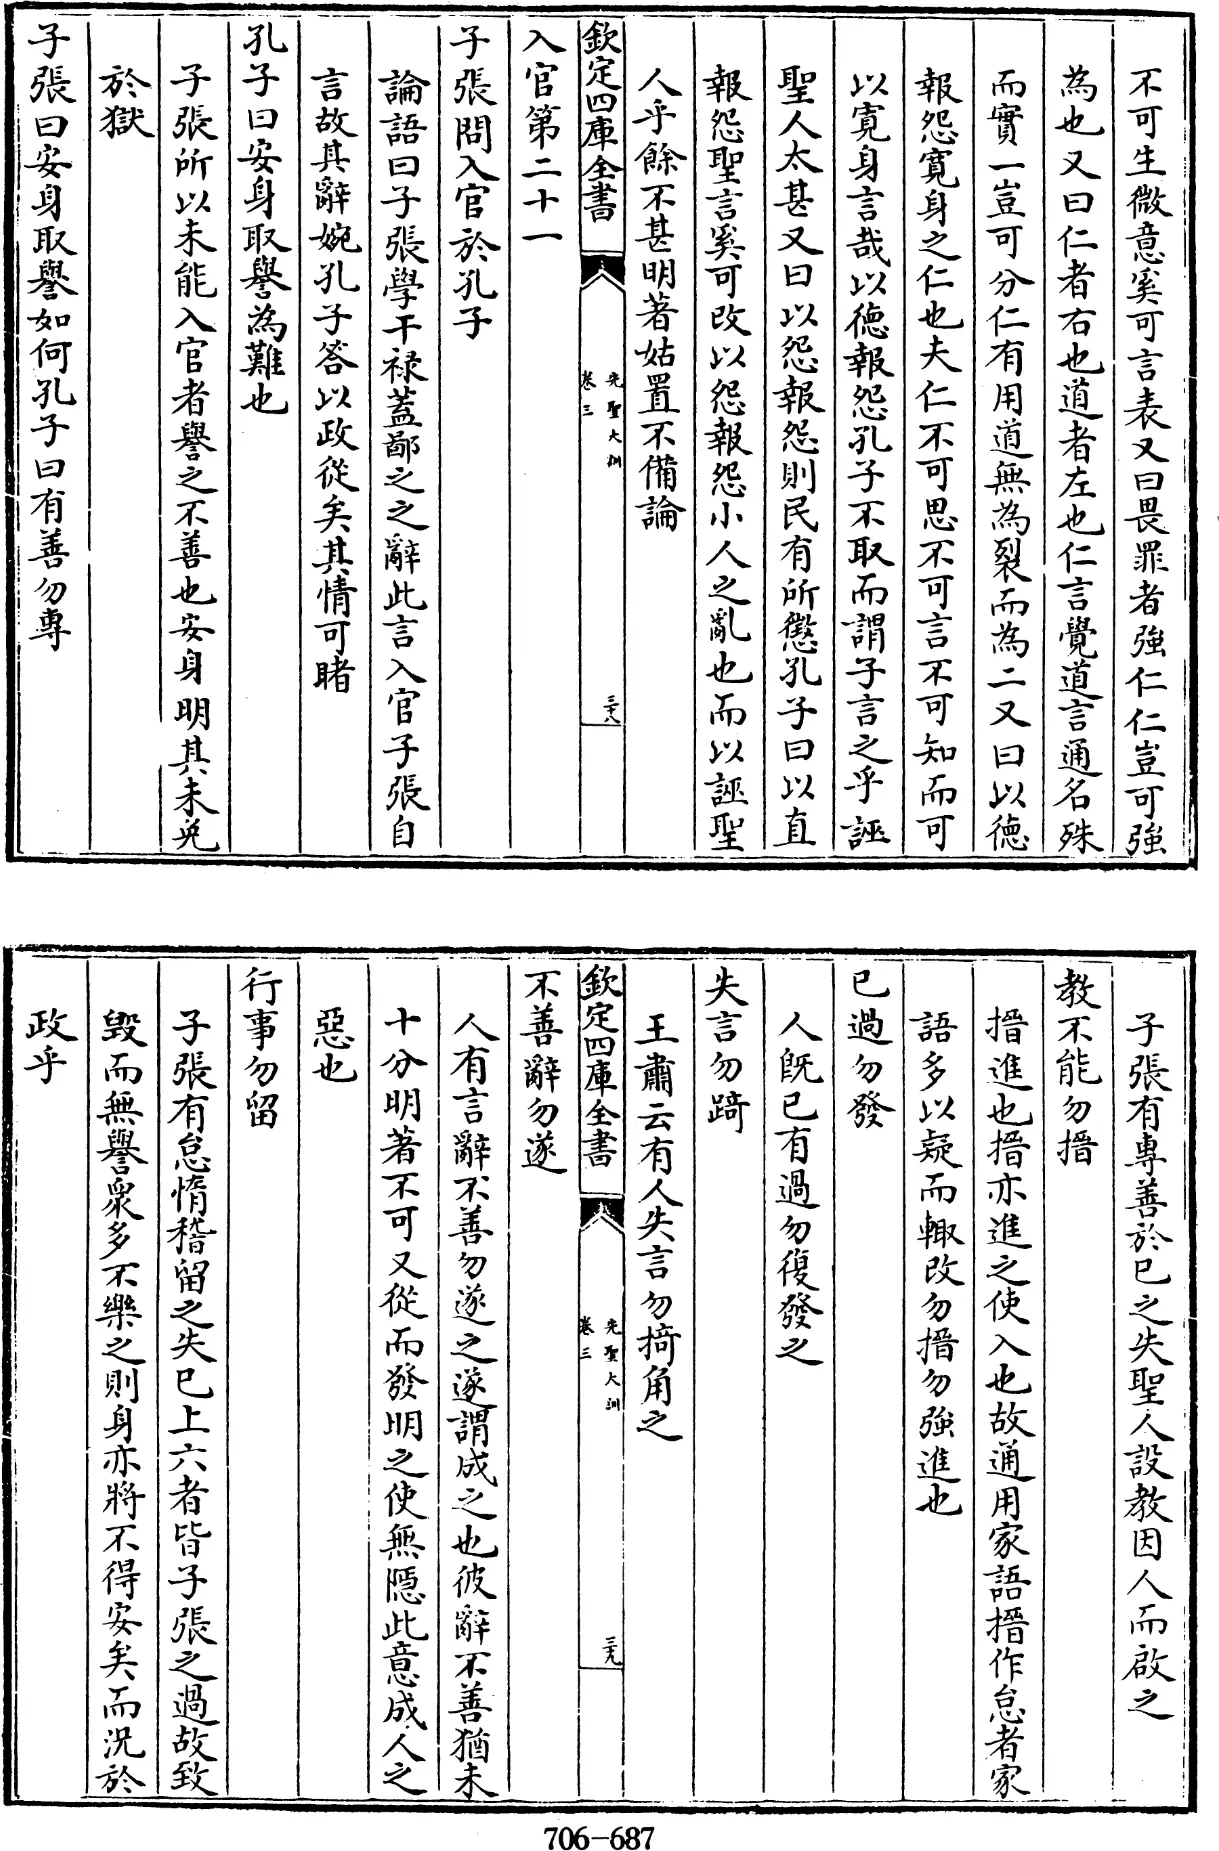 不可生微意奚可言表又曰畏罪者強仁仁豈可強
為也又曰仁者右也道者左也仁言覺道言通名殊
而實一豈可分仁有用道無為裂而為二又曰以德
報怨寛身之仁也夫仁不可思不可言不可知而可
以寛身言哉以德報怨孔子不取而謂子言之乎誣
聖人太甚又曰以怨報怨則民有所懲孔子曰以直
報怨聖言奚可改以怨報怨小人之亂也而以誣聖
人乎餘不甚明著姑置不備論
欽定四庫全書
先聖大訓
卷三
三十八
入官第二十一
子張問入官於孔子
論語曰子張學干祿蓋鄙之之辭此言入官子張自
言故其辭婉孔子答以政從矣其情可睹
孔子曰安身取譽為難也
子張所以未能入官者譽之不善也安身明其未免
於獄
子張曰安身取譽如何孔子曰有善勿專
子張有專善於已之失聖人設教因人而啟之
教不能勿搢
搢進也搢亦進之使入也故通用家語搢作怠者家
語多以疑而輙改勿搢勿強進也
已過勿發
人既已有過勿復發之
失言勿踦
王肅云有人失言勿掎角之
欽定四庫全書
先聖大訓
卷三
三十九
不善辭勿遂
人有言辭不善勿遂之遂謂成之也彼辭不善猶未
十分明著不可又從而發明之使無隠此意成人之
惡也
行事勿留
子張有怠惰稽留之失已上六者皆子張之過故致
毀而無譽衆多不樂之則身亦將不得安矣而況於
政乎
706-687